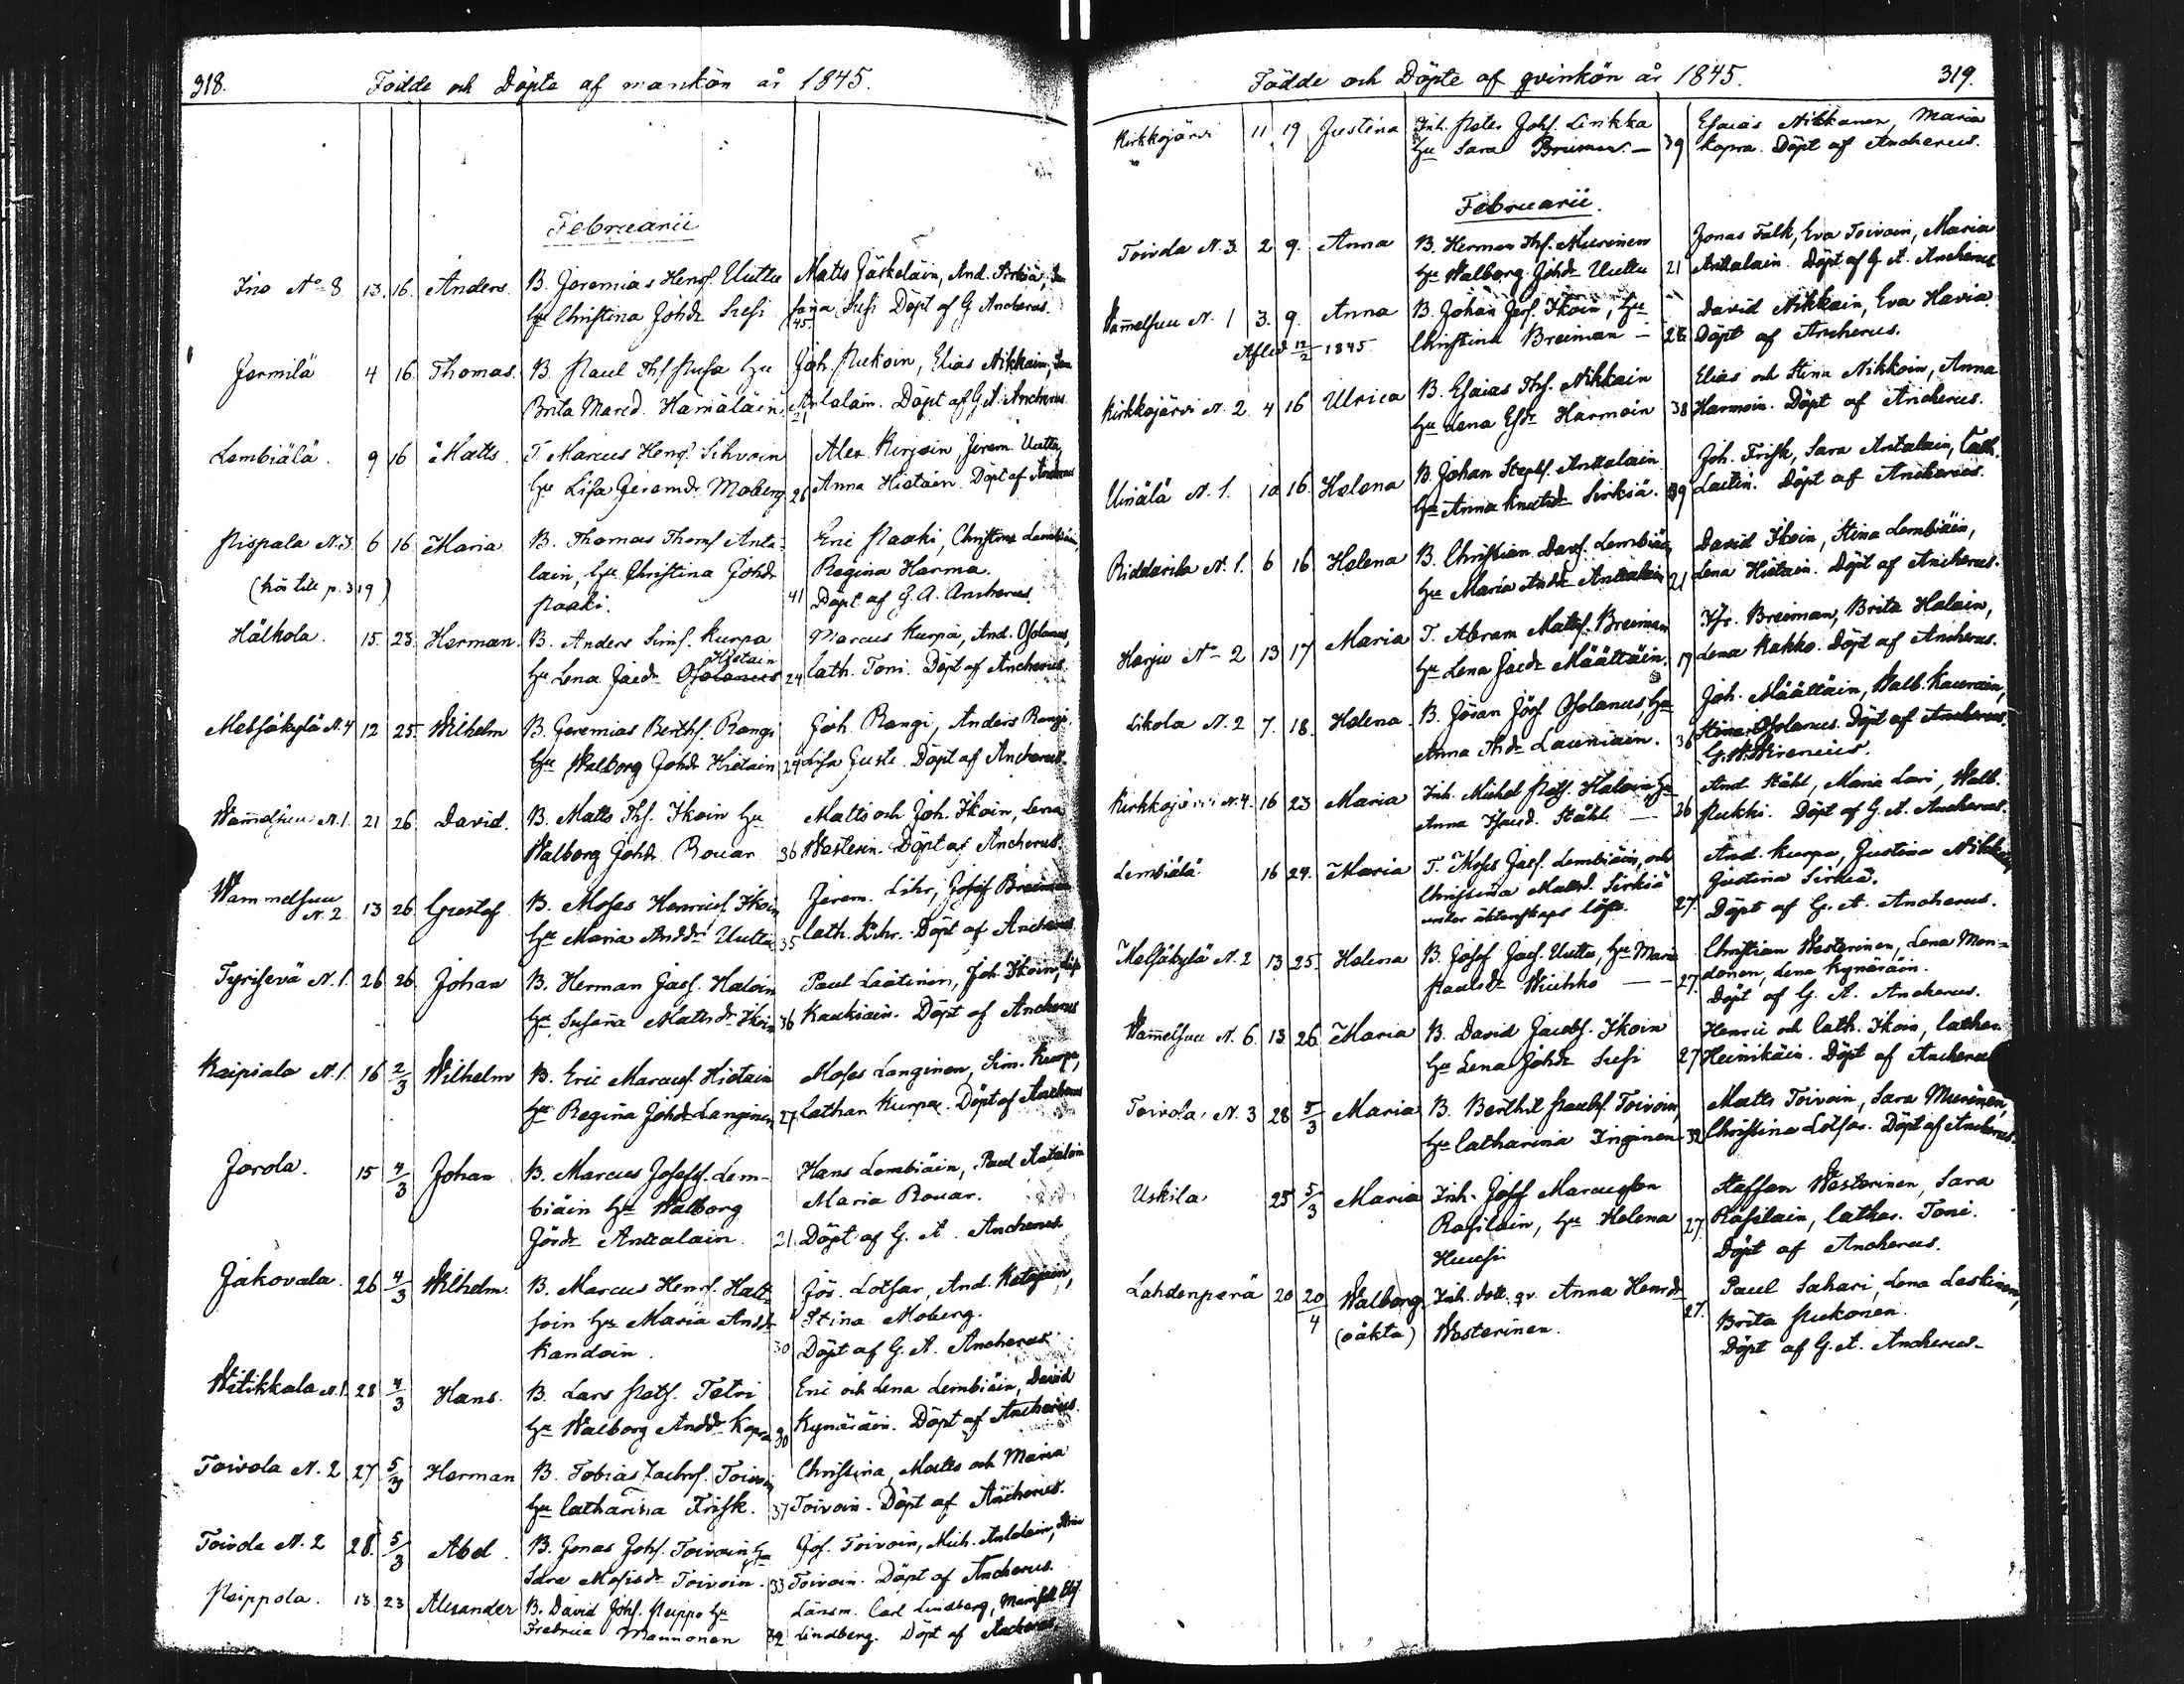 318. Födde och Döpte af mankön år 1845.
Februarii
Ino No 8 13. 16. Anders. B. Jeremias Henrs. Uutta Matts Jäskeläin, And.
Hu Christina Johdr Susi 45 Susi Döpt af G Ancherus.
Jermilä 4 16. Thomas. B. Paul Ths Pusa Hu Joh. Pukoin, Elias Nikkain,
Brita Marcd. Hämäläin 21 Antalain. Döpt af G. A. Ancherus
Lembiälä. 9 16 Matts. T. Marcus Henrs. Sihvoin Alex. Kirjoin, Jerem. Uutta,
Hu Lisa Jeremdr Moberg 26 Anna Hietain. Döpt af Ancherus
Pispala N. 3. 6 16 Maria B. Thomas Thoms Anta- Eric Paaki, Christina Lembiäin,
(hör till p. 319) lain, Hu Christina Johdr Regina Harma.
Paaki. 41 Döpt af G. A. Ancherus.
Hälkola. 15. 23. Herman. B. Anders Sims. Kurpa Marcus Kurpa, And. Osolanus,
Hietain
Hu Lena Jacdr Osolanus 24 Cath. Toni. Döpt af Ancherus.
Metsäkylä N. 4 12 25. Wilhelm B. Jeremias Berths. Rangi Joh. Rangi, Anders Rangi,
Hu Walborg Johdr Hietain 24 Lisa Gusti. Döpt af Ancherus.
Wammelsuu N. 1. 21 26. David. B. Matts Ths. Ikoin Hu Matts och Joh. Ikoin, Lena
Walborg Johdr Rouar 36 Westerin. Döpt af Ancherus.
Wammelsuu Jerem. Lihr, Josef Breiman
N. 2. 13 26. Gustaf B. Moses Henrics. Ikoin
Hu Maria Anddr Uutta 35 Cath. Lihr. Döpt af Ancherus
Tyrisevä N. 1. 26 26. Johan B. Herman Jacs. Haloin Paul Laatinen, Joh. Ikoin,
Hu Susanna Mattsdr Ikoin 36 Kaukiain. Döpt af Ancherus
Kaipiala N. 1. 16 2/3 Wilhelm B. Eric Marcuss. Hietain Moses Langinen, Sim. Kurpa,
Hu Regina Johdr Langinen 27. Cathar. Kurpa. Döpt af Ancherus
Jorola. 15 4/3 Johan B. Marcus Josefs. Lem- Hans Lembiäin, Paul Antalain
biäin Hu Walborg Maria Rouar.
Jördr Antalain. 21. Döpt af G. A. Ancherus.
Jakovala. 26 4/3 Wilhelm. B. Marcus Henrs. Hatt- Jör. Lotsar, And. Katajain,
soin Hu Maria Andsdr Stina Moberg.
Kandoin. 30 Döpt af G. A. Ancherus
Witikkala N. 1. 28 4/3 Hans. B. Lars Pets. Tetri Eric och Lena Lembiäin, David
Hu Walborg Anddr Kopra 30 Kynäräin. Döpt af Ancherus.
Toivola N. 2 27 5/3 Herman B. Tobias Zachrs. Toivoin Christina, Matts och Maria
Hu Catharina Frisk. 37 Toivoin. Döpt af Ancherus.
Toivola N. 2 28. 5/3 Abel. B. Jonas Johs. Toivoin Hu Jos. Toivoin, Mich. Antalain, Stina
Sara Mosisdr Toivoin. 33 Toivoin. Döpt af Ancherus.
Peippola. 13. 23 Alexander B. David Johs. Peippo Hu Länsm. Carl Lindberg,
Fredrica Mannonen 32 Lindberg. Döpt af Ancherus.
Födde och Döpte af qvinkön år 1845. 319.
Kirkkojärvi 11. 19 Justina Inh. Peter Johs. Linkka Esaias Nikkanen, Maria
Hu Sara 39 Kopra. Döpt af Ancherus.
Februarii.
Toivola N. 3. 2 9. Anna B. Herman Ths. Murinen Jonas Falk, Eva Toivoin, Maria
Hu Walborg Johdr Uutta 21 Antalain. Döpt af G. A. Ancherus
Wammelsuu N. 1 3. 9. Anna B. Johan Jers. Ikoin, Hu David Nikkain, Eva Havia
Afled 12/2 1845 Christina Breiman 28 Döpt af Ancherus.
Kirkkojärvi N. 2 4 16 Ulrica B. Esaias Ths. Nikkain Elias och Stina Nikkoin, Anna
Hu Lena Esdr Harmoin 38 Harmoin. Döpt af Ancherus.
Uiniälä N. 1. 10 16. Helena B. Johan Stephs. Antalain Joh. Frisk, Sara Antalain, Cath.
Hu Anna Knutsdr Sirkiä. 39 Laitin. Döpt af Ancherus.
Riddarila N. 1. 6 16 Helena B. Christian Davs. Lembiäin David Ikoin, Stina Lembiäin,
Hu Maria Andr Antalain 21 Lena Hietain. Döpt af Ancherus.
Harju No 2 13 17 Maria T. Abram Matts. Breiman Breiman, Brita Halain,
Hu Lena Jacdr Määttäin. 17 Lena Kakko. Döpt af Ancherus.
Likola N. 2 7. 18. Helena. B. Jöran Jörs. Osolanus, Hu Joh. Määttäin, Walb. Kaurain,
Anna Andr Launiain. 36 Stina Osolanus. Döpt af Ancherus.
G. W. Wirenius.
Kirkkojärvi N. 4. 16 23 Maria Inh. Michel Pets. Haloin Hu And. Ståhl, Maria Lari, Walb.
Anna Ståhl 36 Pukki. Döpt af G. A. Ancherus.
Lembiälä 16 24. Maria T. Moses Jacs. Lembiäin, och And. Kurpa, Justina
Christina Mattsd. Sirkiä Justina Sirkiä.
under äktenskaps löfte. 27. Döpt af G. A. Ancherus.
Metsäkylä N. 2 13 25. Helena B. Josef Jacs. Uutta, Hu Maria Christian Westerinen, Lena Mon-
Paulsdr Wiuhko 27. donen, Lena Kynäräin.
Döpt af G. A. Ancherus.
Wammelsuu N. 6. 13 26 Maria B. David Jacobs. Ikoin Henric och Cath. Ikoin, Cathar.
Hu Lena Johdr Susi 27 Heinikäin. Döpt af Ancherus
Toivola. N. 3 28 5/3 Maria B. Berthil Paulss. Toivoin, Matts Toivoin, Sara Murinen,
Hu Catharina Inginen 32 Christina Lotsar. Döpt af Ancherus.
Uskila 25 5/3 Maria Inh. Josef Marcusson Staffan Westerinen, Sara
Rasilain, Hu Helena 27. Rasilain, Cathar. Toni.
Huusi Döpt af Ancherus.
Lahdenperä 20 20/4 Walborg Inh. dott. qv. Anna Henrdr Paul Sahari, Lena Leskinen,
(oäkta) Westerinen. 27. Brita Pukonen.
Döpt af G. A. Ancherus.